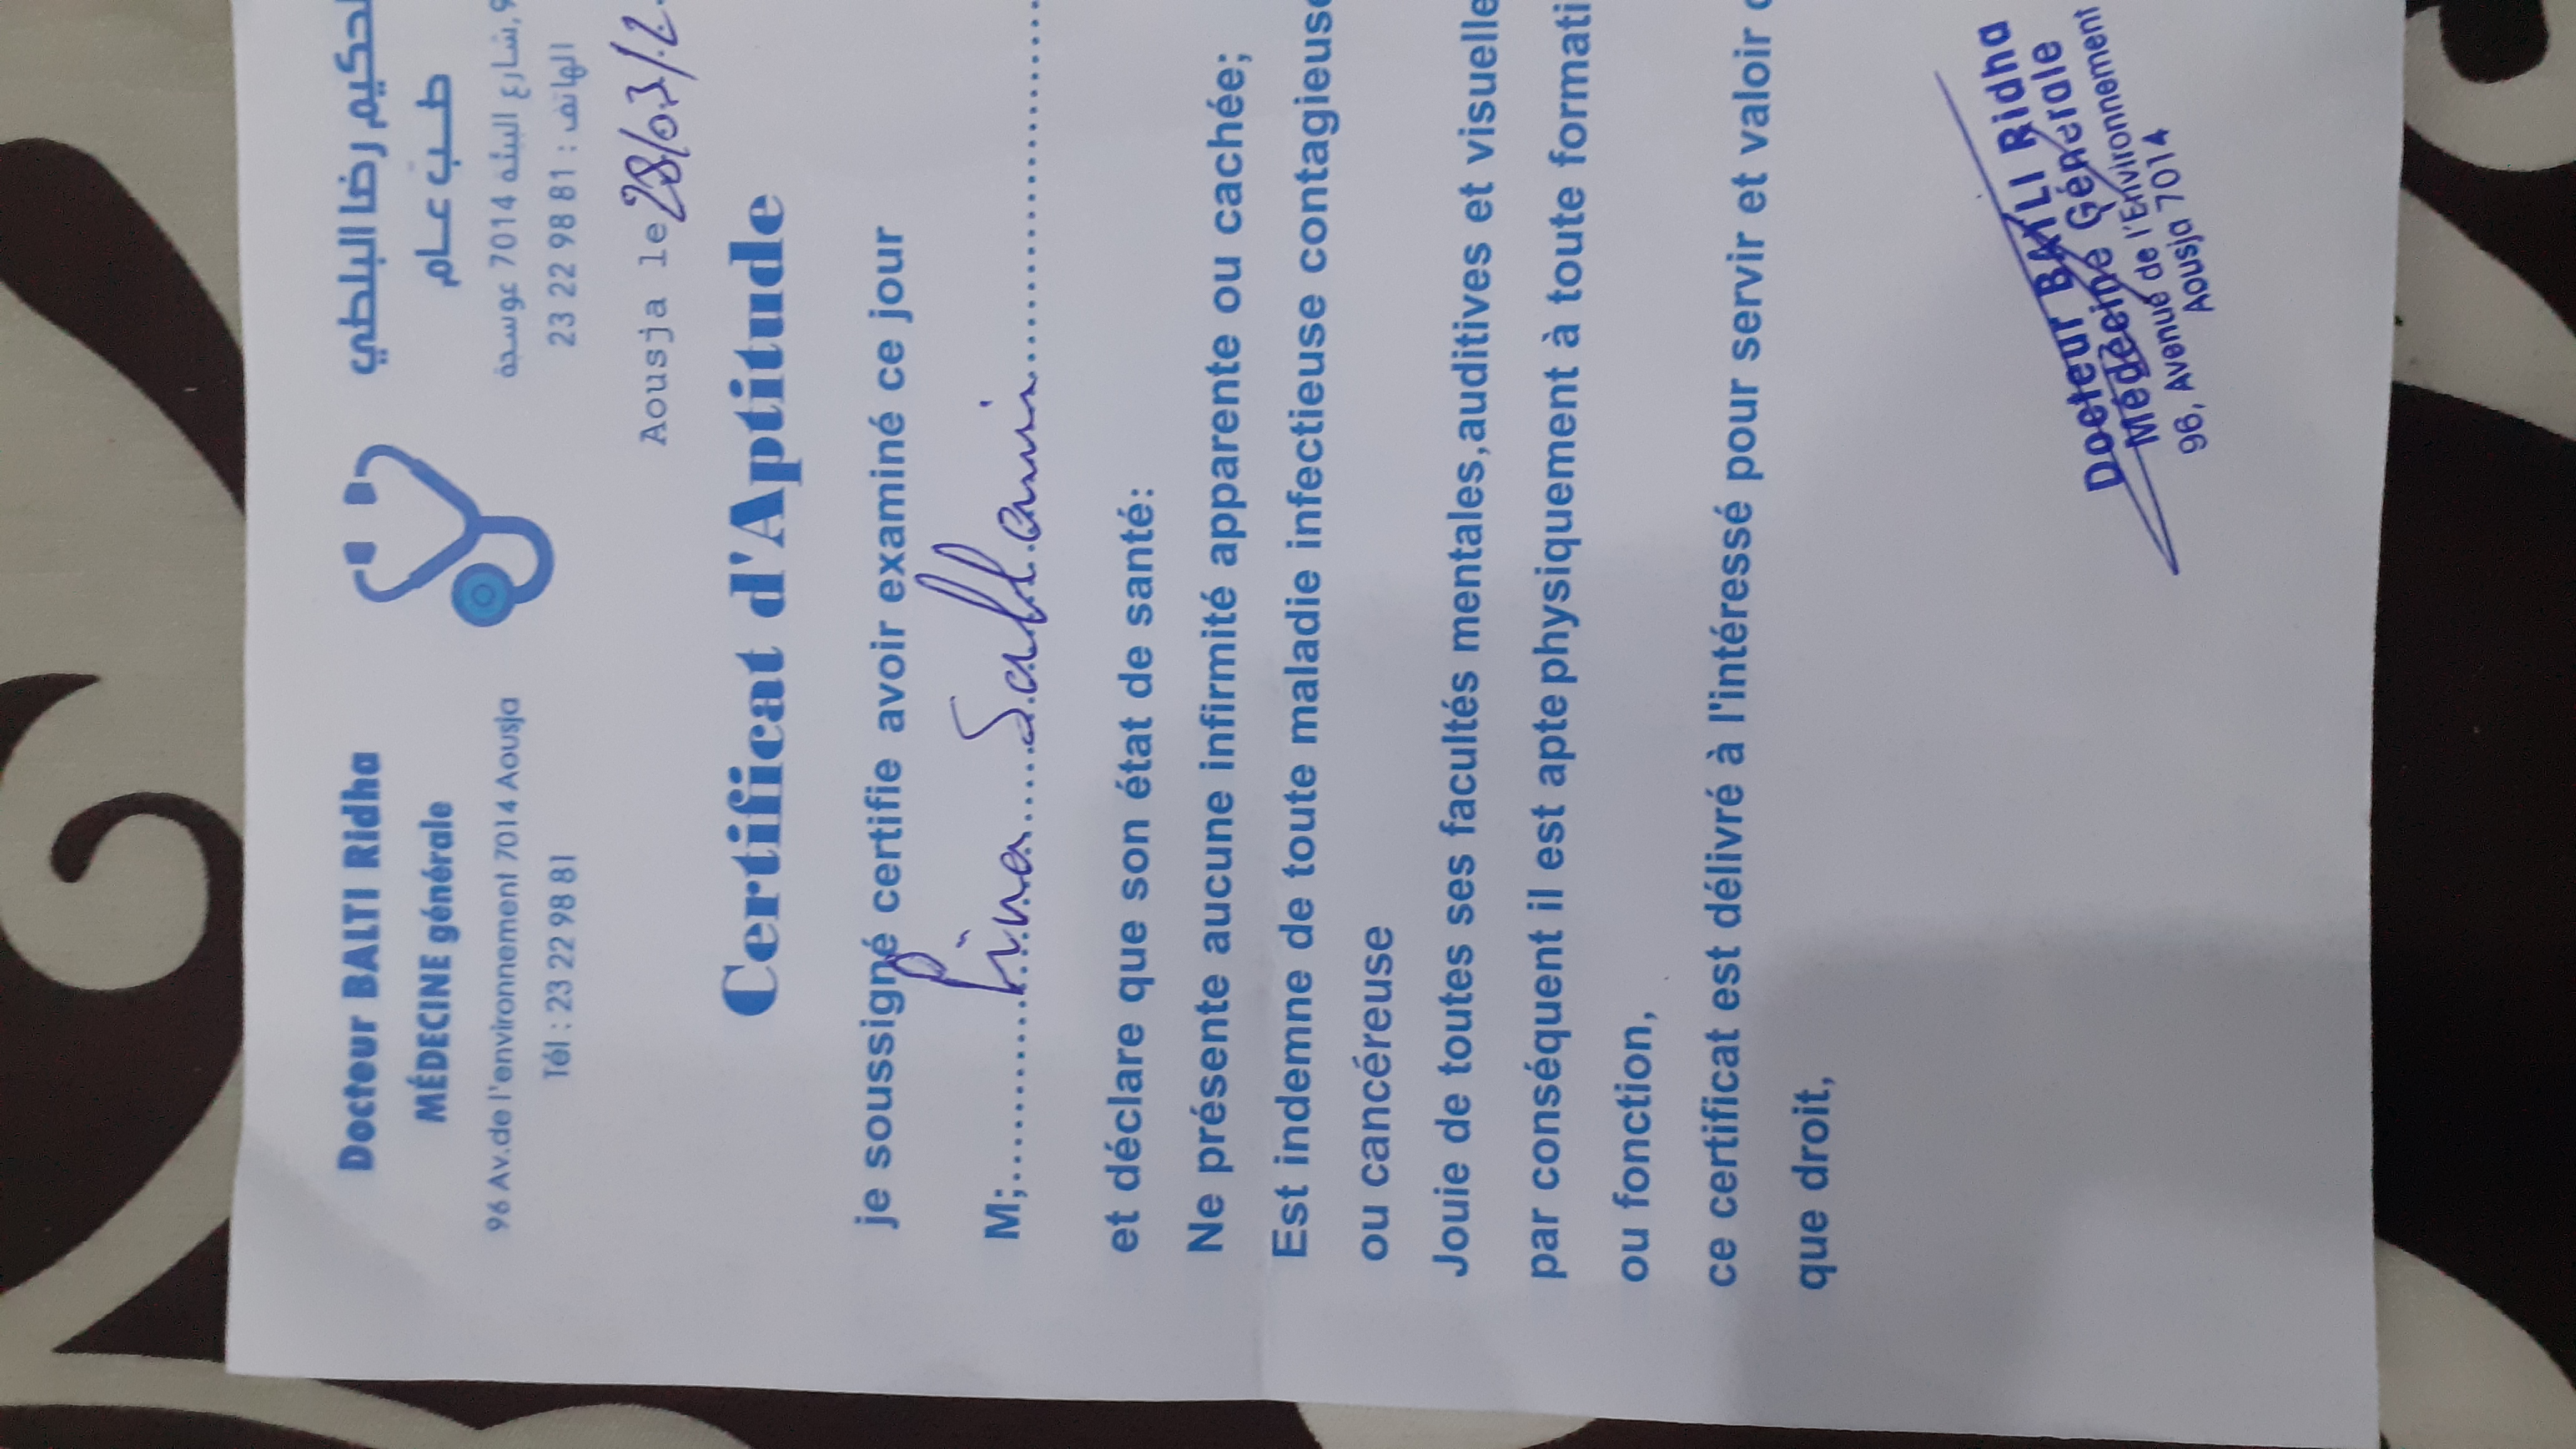 Docteur BALTI Ridha
MÉDECINE générale
96 Av.de l'environnement 7014 Aousja
Tél : 23 22 98 81
البلطي رضا
طب عام
شارع البيئة 7014 عوسجة
الهاتف : 23 22 98 81
Aousja le 28/03/2
Certificat d'Aptitude
je soussigné certifie avoir examiné ce jour
M;
et déclare que son état de santé:
Ne présente aucune infirmité apparente ou cachée;
Est indemne de toute maladie infectieuse contagieuse
ou cancéreuse
Jouie de toutes ses facultés mentales,auditives et visuelle
par conséquent il est apte physiquement à toute formati
ou fonction,
ce certificat est délivré à l'intéressé pour servir et valoir c
que droit,
Docteur BALTI Ridha
Médecine Générale
96, Avenue de l'Environnement
Aousja 7014